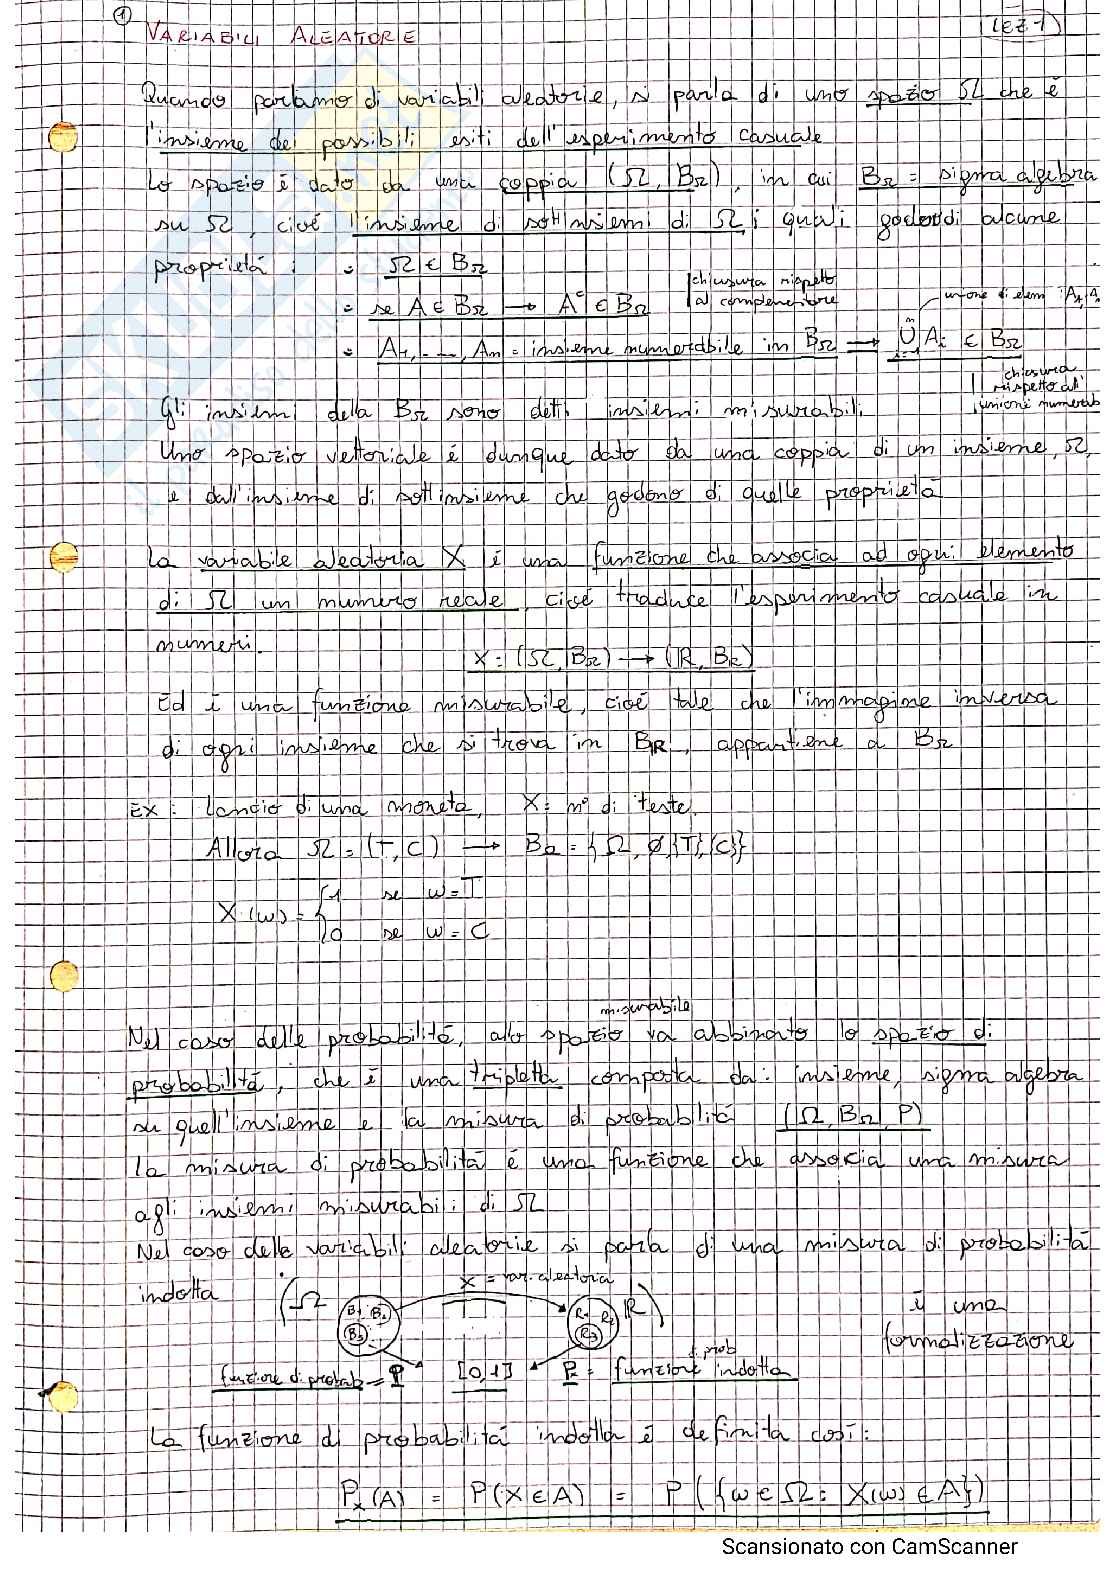 ① VARIABILI ALEATORIE (LEZ 1)
Quando parliamo di variabili aleatorie, si parla di uno spazio Ω che è
l'insieme dei possibili esiti dell'esperimento casuale
Lo spazio è dato da una coppia (Ω, BΩ), in cui BΩ = sigma algebra
su Ω, cioè l'insieme di sottinsiemi di Ω i quali godono di alcune
proprietà : = Ω ∈ BΩ
= se A ∈ BΩ → Aᶜ ∈ BΩ chiusura rispetto al complementare
unione di elem : A1, A
= A1, ..., An = insieme numerabile in BΩ → ⋃ Ai ∈ BΩ
chiusura rispetto all' unione numerab
Gli insiemi della BΩ sono detti insiemi misurabili.
Uno spazio vettoriale è dunque dato da una coppia di un insieme, Ω,
e dall'insieme di sottinsieme che godono di quelle proprietà
La variabile aleatoria X è una funzione che associa ad ogni elemento
di Ω un numero reale, cioè traduce l'esperimento casuale in
numeri.
X : (Ω, BΩ) → (R, BR)
Ed è una funzione misurabile, cioè tale che l'immagine inversa
di ogni insieme che si trova in BR, appartiene a BΩ
EX : Lancio di una moneta, X = n° di teste.
Allora Ω = (T, C) → BΩ = { Ω, ∅, {T}, {C}}
X (ω) = { 1 se ω = T
0 se ω = C
misurabile
Nel caso delle probabilità, allo spazio va abbinato lo spazio di
probabilità, che è una tripletta composta da: insieme, sigma algebra
su quell'insieme e la misura di probabilità (Ω, BΩ, P)
La misura di probabilità è una funzione che associa una misura
agli insiemi misurabili di Ω
Nel caso delle variabili aleatorie si parla di una misura di probabilità
indotta
X = var. aleatoria
Ω B1 B2 B3 R1 R2 R3 R
è una
formalizzazione
funzione di probab = P [0,1] Px = funzione di prob indotta
La funzione di probabilità indotta è definita così:
Px (A) = P(X ∈ A) = P ({ω ∈ Ω : X(ω) ∈ A})
Scansionato con CamScanner